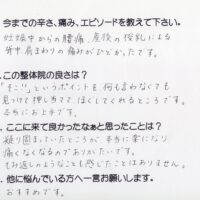 今までの辛さ、痛み、エピソードを教えて下さい。
妊娠中からの腰痛、産後の授乳による
背中、肩まわりの痛みがひどかったです。
．この整体院の良さは？
「そこ!!」というポイントを何も言わなくても
見つけて押し当てて、ほぐしてくれるところです。
本当にお上手です。
．ここに来て良かったなぁと思ったことは？
凝り固まっていたところが、本当に楽になり
痛くなくなるのでありがたいです。
もみ返しのようなことも感じたことはありません。
．他に悩んでいる方へ一言お願いします。
おすすめです。